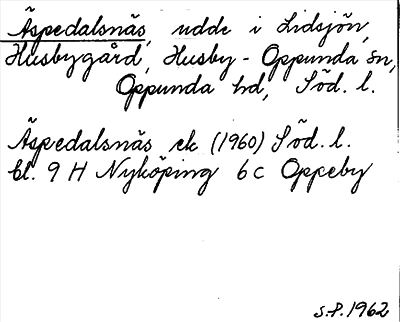 Äspedalsnäs, udde i Lidsjön,
Husbygård, Husby-Oppunda sn,
Oppunda hd, Söd. l.
Äspedalsnäs ek (1960) Söd. l.
bl. 9 H Nyköping 6 c Oppeby
S.P. 1962